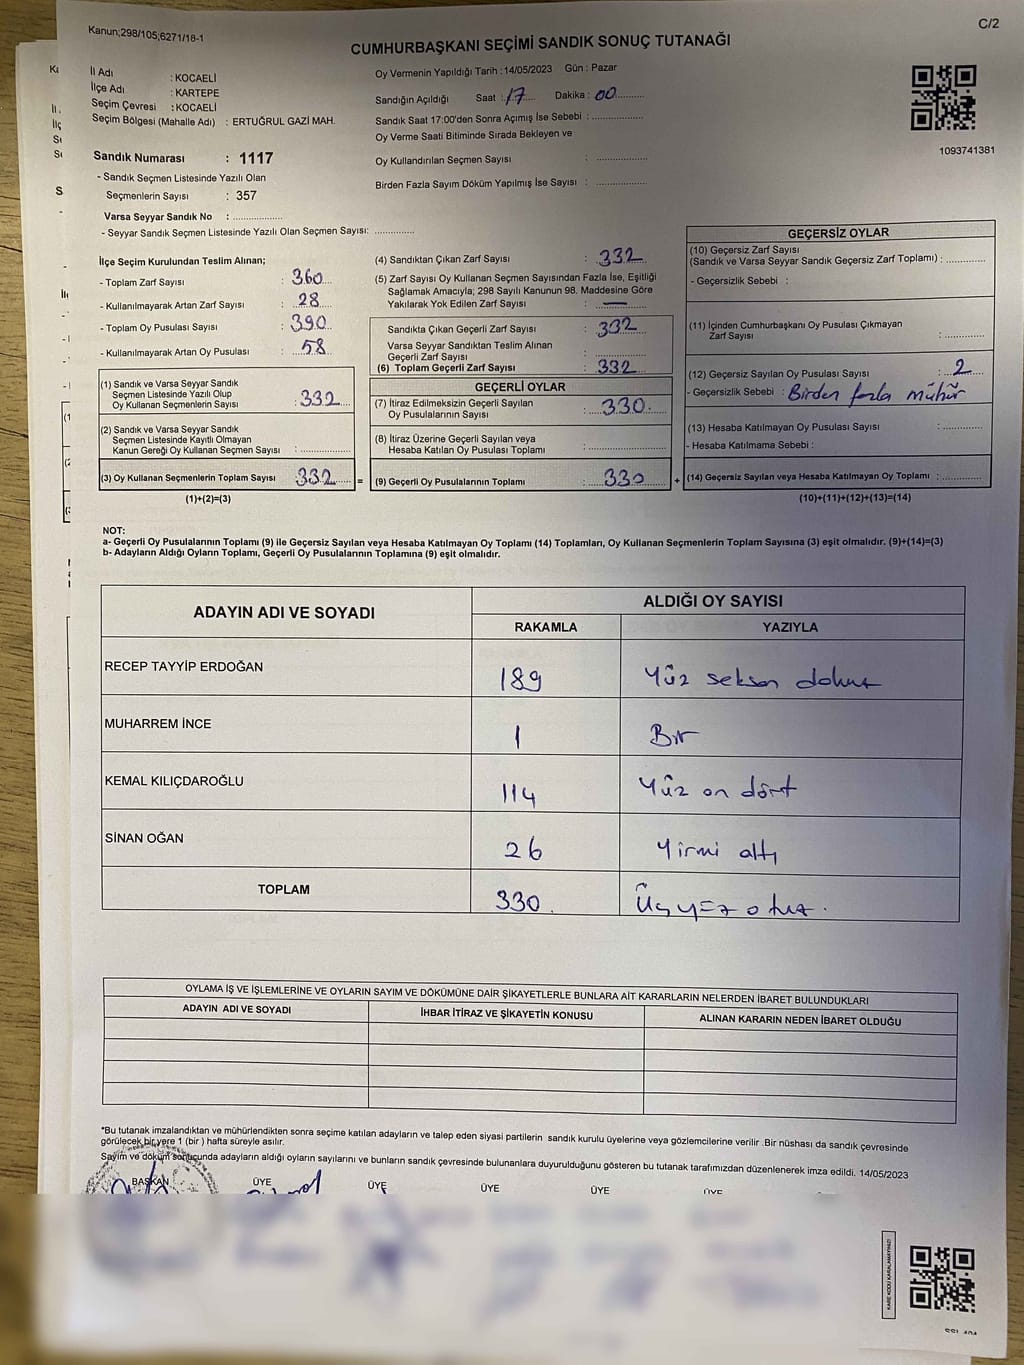 Kanun;298/105;6271/18-1
C/2
CUMHURBAŞKANI SEÇİMİ SANDIK SONUÇ TUTANAĞI
İl Adı : KOCAELİ
İlçe Adı : KARTEPE
Seçim Çevresi : KOCAELİ
Seçim Bölgesi (Mahalle Adı) : ERTUĞRUL GAZİ MAH.
Sandık Numarası : 1117
- Sandık Seçmen Listesinde Yazılı Olan
Seçmenlerin Sayısı : 357
Varsa Seyyar Sandık No : ................
- Seyyar Sandık Seçmen Listesinde Yazılı Olan Seçmen Sayısı: ............
Oy Vermenin Yapıldığı Tarih : 14/05/2023 Gün : Pazar
Sandığın Açıldığı Saat : 17 Dakika : 00
Sandık Saat 17:00'den Sonra Açımış İse Sebebi : ................
Oy Verme Saati Bitiminde Sırada Bekleyen ve
Oy Kullandırılan Seçmen Sayısı : ................
Birden Fazla Sayım Döküm Yapılmış İse Sayısı : ................
1093741381
İlçe Seçim Kurulundan Teslim Alınan;
- Toplam Zarf Sayısı : 360
- Kullanılmayarak Artan Zarf Sayısı : 28
- Toplam Oy Pusulası Sayısı : 390
- Kullanılmayarak Artan Oy Pusulası : 58
(1) Sandık ve Varsa Seyyar Sandık
Seçmen Listesinde Yazılı Olup
Oy Kullanan Seçmenlerin Sayısı : 332
(2) Sandık ve Varsa Seyyar Sandık
Seçmen Listesinde Kayıtlı Olmayan
Kanun Gereği Oy Kullanan Seçmen Sayısı : ............
(3) Oy Kullanan Seçmenlerin Toplam Sayısı : 332 =
(1)+(2)=(3)
(4) Sandıktan Çıkan Zarf Sayısı : 332
(5) Zarf Sayısı Oy Kullanan Seçmen Sayısından Fazla İse, Eşitliği
Sağlamak Amacıyla; 298 Sayılı Kanunun 98. Maddesine Göre
Yakılarak Yok Edilen Zarf Sayısı : —
Sandıkta Çıkan Geçerli Zarf Sayısı : 332
Varsa Seyyar Sandıktan Teslim Alınan
Geçerli Zarf Sayısı : ............
(6) Toplam Geçerli Zarf Sayısı : 332
GEÇERLİ OYLAR
(7) İtiraz Edilmeksizin Geçerli Sayılan
Oy Pusulalarının Sayısı : 330.
(8) İtiraz Üzerine Geçerli Sayılan veya
Hesaba Katılan Oy Pusulası Toplamı : ............
(9) Geçerli Oy Pusulalarının Toplamı : 330 +
GEÇERSİZ OYLAR
(10) Geçersiz Zarf Sayısı
(Sandık ve Varsa Seyyar Sandık Geçersiz Zarf Toplamı) : ............
- Geçersizlik Sebebi :
(11) İçinden Cumhurbaşkanı Oy Pusulası Çıkmayan
Zarf Sayısı : ............
(12) Geçersiz Sayılan Oy Pusulası Sayısı : 2
- Geçersizlik Sebebi : Birden fazla mühür
(13) Hesaba Katılmayan Oy Pusulası Sayısı : ............
- Hesaba Katılmama Sebebi :
(14) Geçersiz Sayılan veya Hesaba Katılmayan Oy Toplamı : ............
(10)+(11)+(12)+(13)=(14)
NOT:
a- Geçerli Oy Pusulalarının Toplamı (9) ile Geçersiz Sayılan veya Hesaba Katılmayan Oy Toplamı (14) Toplamları, Oy Kullanan Seçmenlerin Toplam Sayısına (3) eşit olmalıdır. (9)+(14)=(3)
b- Adayların Aldığı Oyların Toplamı, Geçerli Oy Pusulalarının Toplamına (9) eşit olmalıdır.
ADAYIN ADI VE SOYADI
ALDIĞI OY SAYISI
RAKAMLA YAZIYLA
RECEP TAYYİP ERDOĞAN 189 Yüz seksen dokuz
MUHARREM İNCE 1 Bir
KEMAL KILIÇDAROĞLU 114 Yüz on dört
SİNAN OĞAN 26 Yirmi altı
TOPLAM 330. Üç yüz otuz.
OYLAMA İŞ VE İŞLEMLERİNE VE OYLARIN SAYIM VE DÖKÜMÜNE DAİR ŞİKAYETLERLE BUNLARA AİT KARARLARIN NELERDEN İBARET BULUNDUKLARI
ADAYIN ADI VE SOYADI İHBAR İTİRAZ VE ŞİKAYETİN KONUSU ALINAN KARARIN NEDEN İBARET OLDUĞU
*Bu tutanak imzalandıktan ve mühürlendikten sonra seçime katılan adayların ve talep eden siyasi partilerin sandık kurulu üyelerine veya gözlemcilerine verilir .Bir nüshası da sandık çevresinde
görülecek bir yere 1 (bir ) hafta süreyle asılır.
Sayım ve döküm sonucunda adayların aldığı oyların sayılarını ve bunların sandık çevresinde bulunanlara duyurulduğunu gösteren bu tutanak tarafımızdan düzenlenerek imza edildi. 14/05/2023
BAŞKAN ÜYE ÜYE ÜYE ÜYE ÜYE
KARE KODU KARALAMAYINIZ!